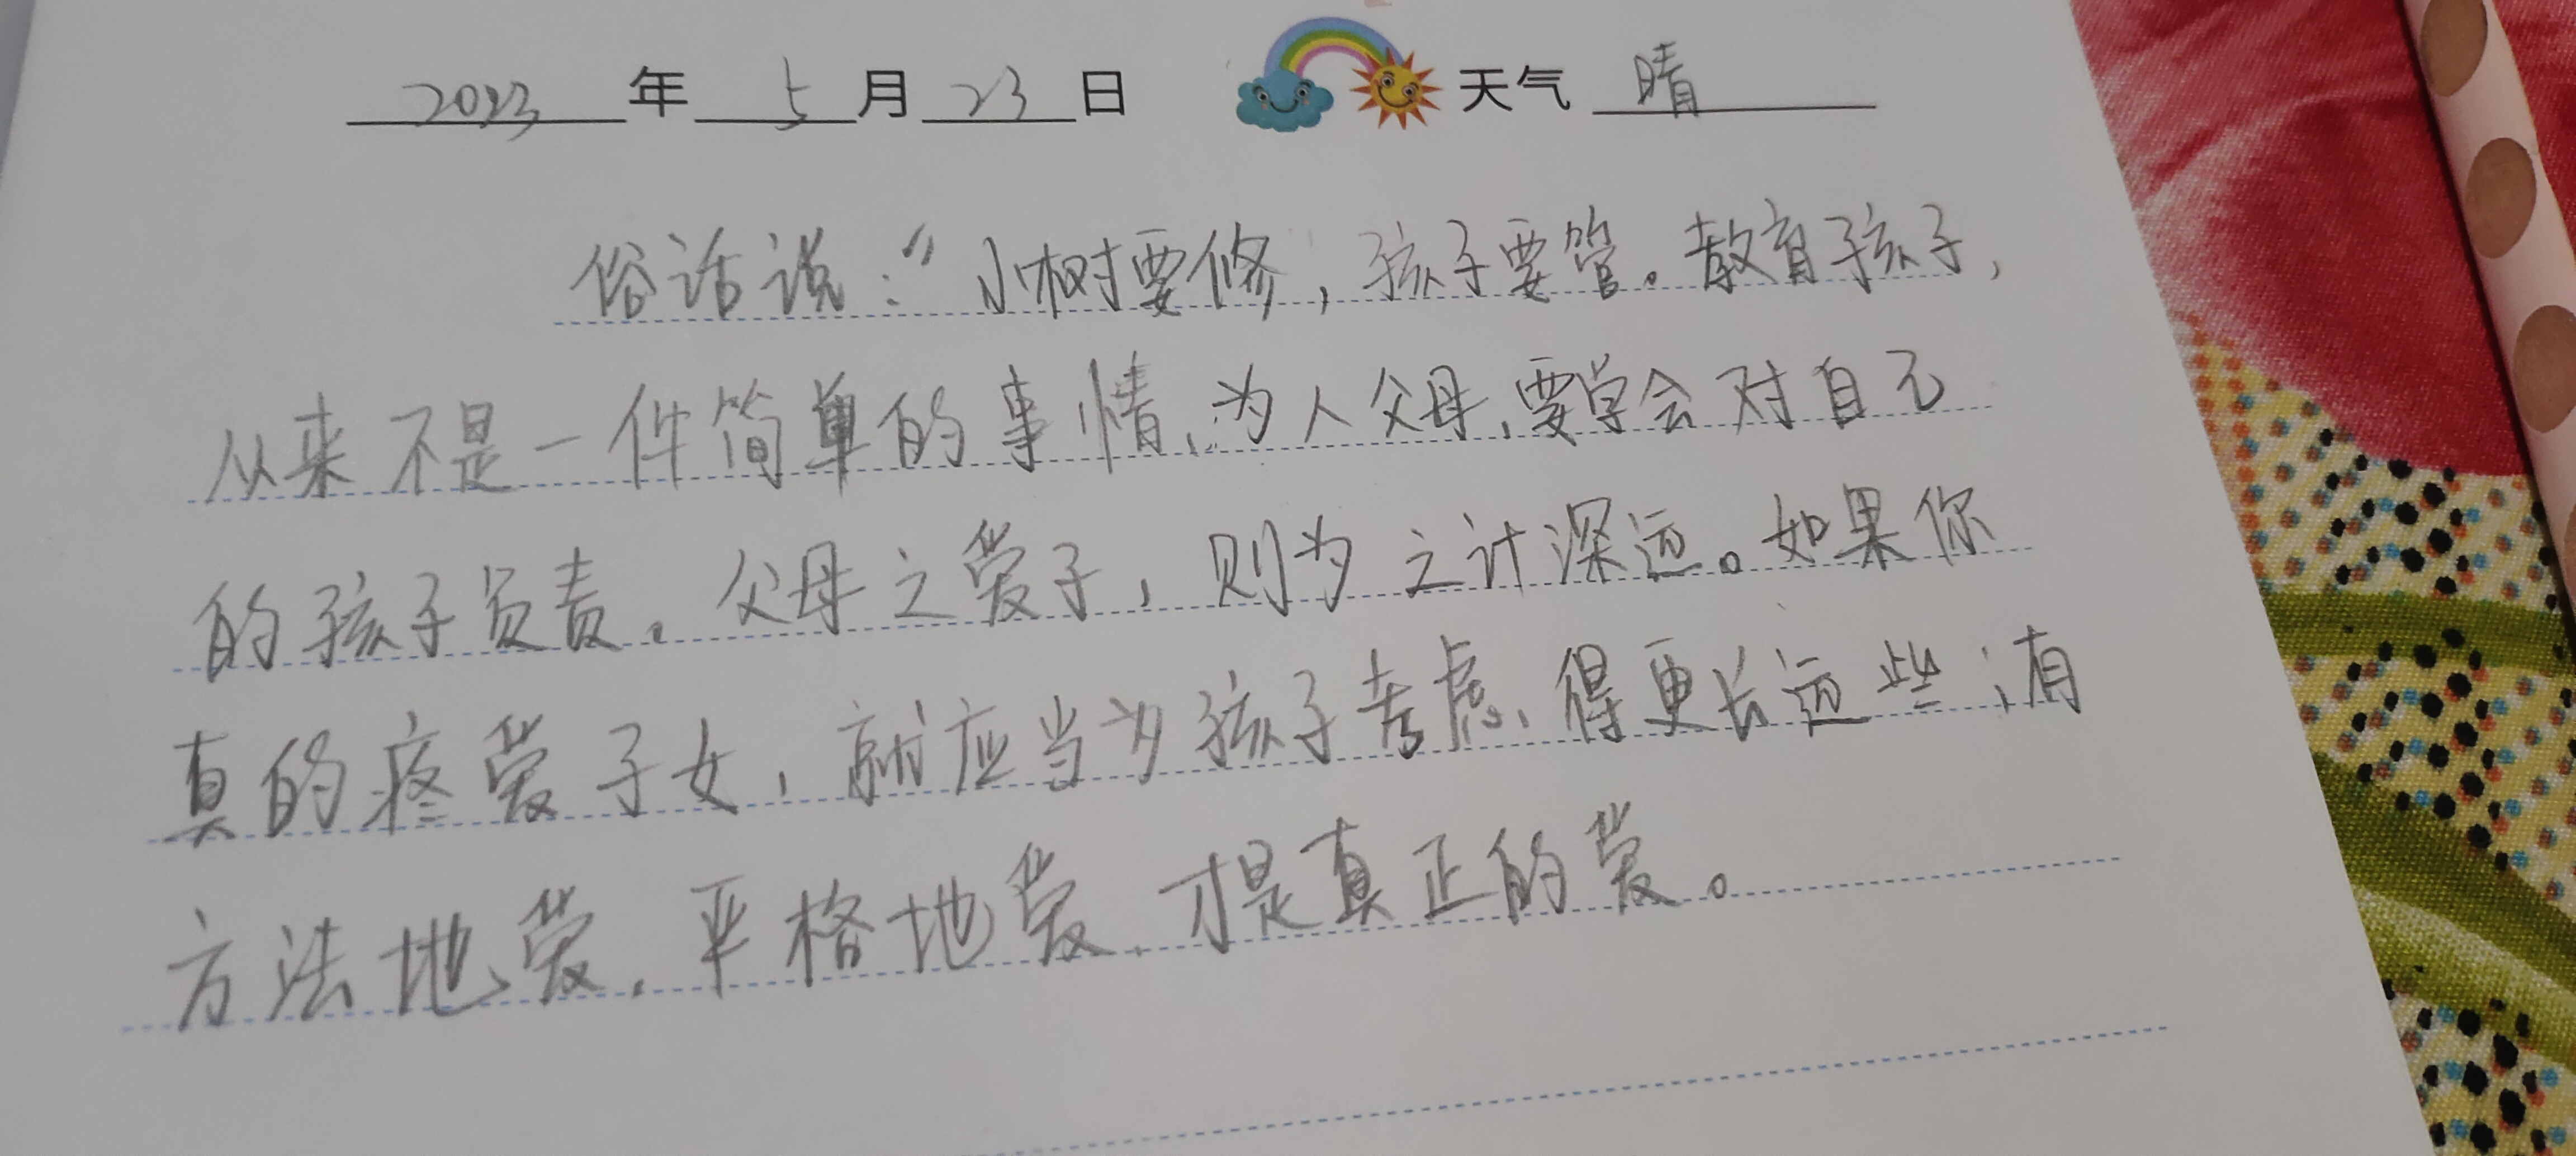 2023年5月23日 天气 晴
俗话说:“小树要修,孩子要管。教育孩子,
从来不是一件简单的事情,为人父母,要学会对自己
的孩子负责。父母之爱子,则为之计深远。如果你
真的疼爱子女,就应当为孩子考虑、得更长远些;有
方法地爱,严格地爱,才是真正的爱。